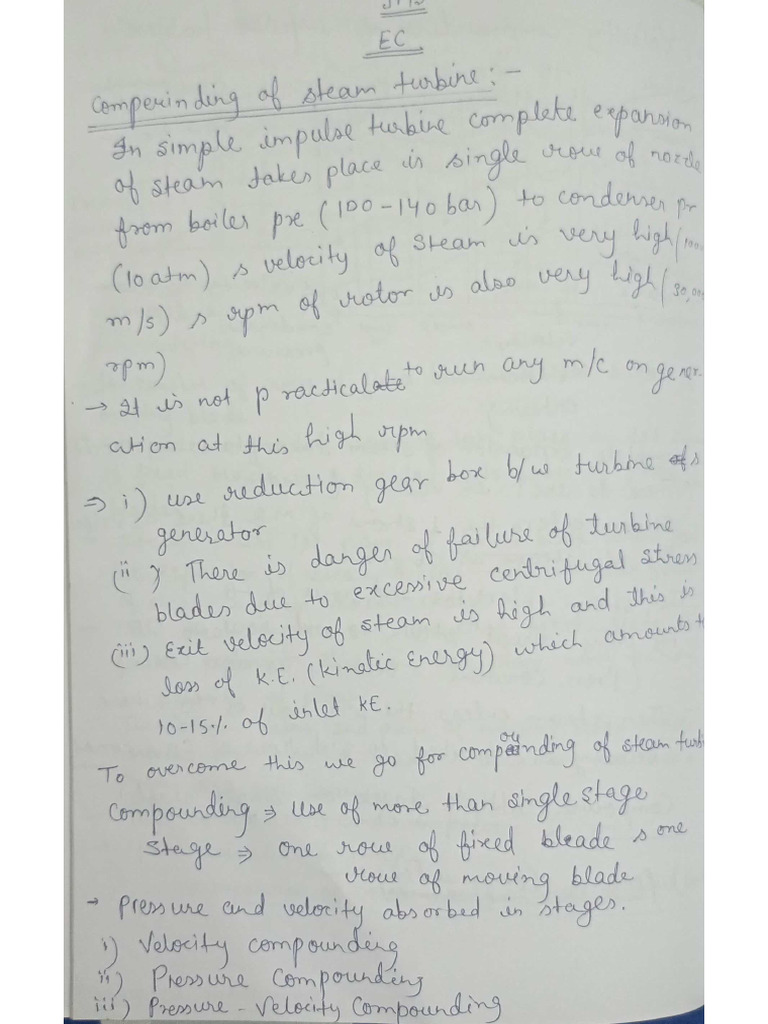 EC
Comperinding of steam turbine:-
In simple impulse turbine complete expansion
of steam takes place is single roue of nozzle
from boiler pre (100-140 bar) to condenser pr
(10 atm) s velocity of steam is very high (
m/s) s rpm of rotor is also very high (30,00
rpm)
→ It is not practical to run any m/c on gener-
ation at this high rpm
⇒ i) use reduction gear box b/w turbine s
generator
(ii) There is danger of failure of turbine
blades due to excessive centrifugal stress
(iii) Exit velocity of steam is high and this is
loss of K.E. (kinetic Energy) which amounts t
10-15% of inlet KE.
To overcome this we go for compounding of steam turbi
Compounding ⇒ Use of more than single stage
Stage ⇒ one roue of fixed bleade s one
roue of moving blade
→ Pressure and velocity absorbed in stages.
i) Velocity compounding
ii) Pressure Compounding
iii) Pressure - Velocity Compounding